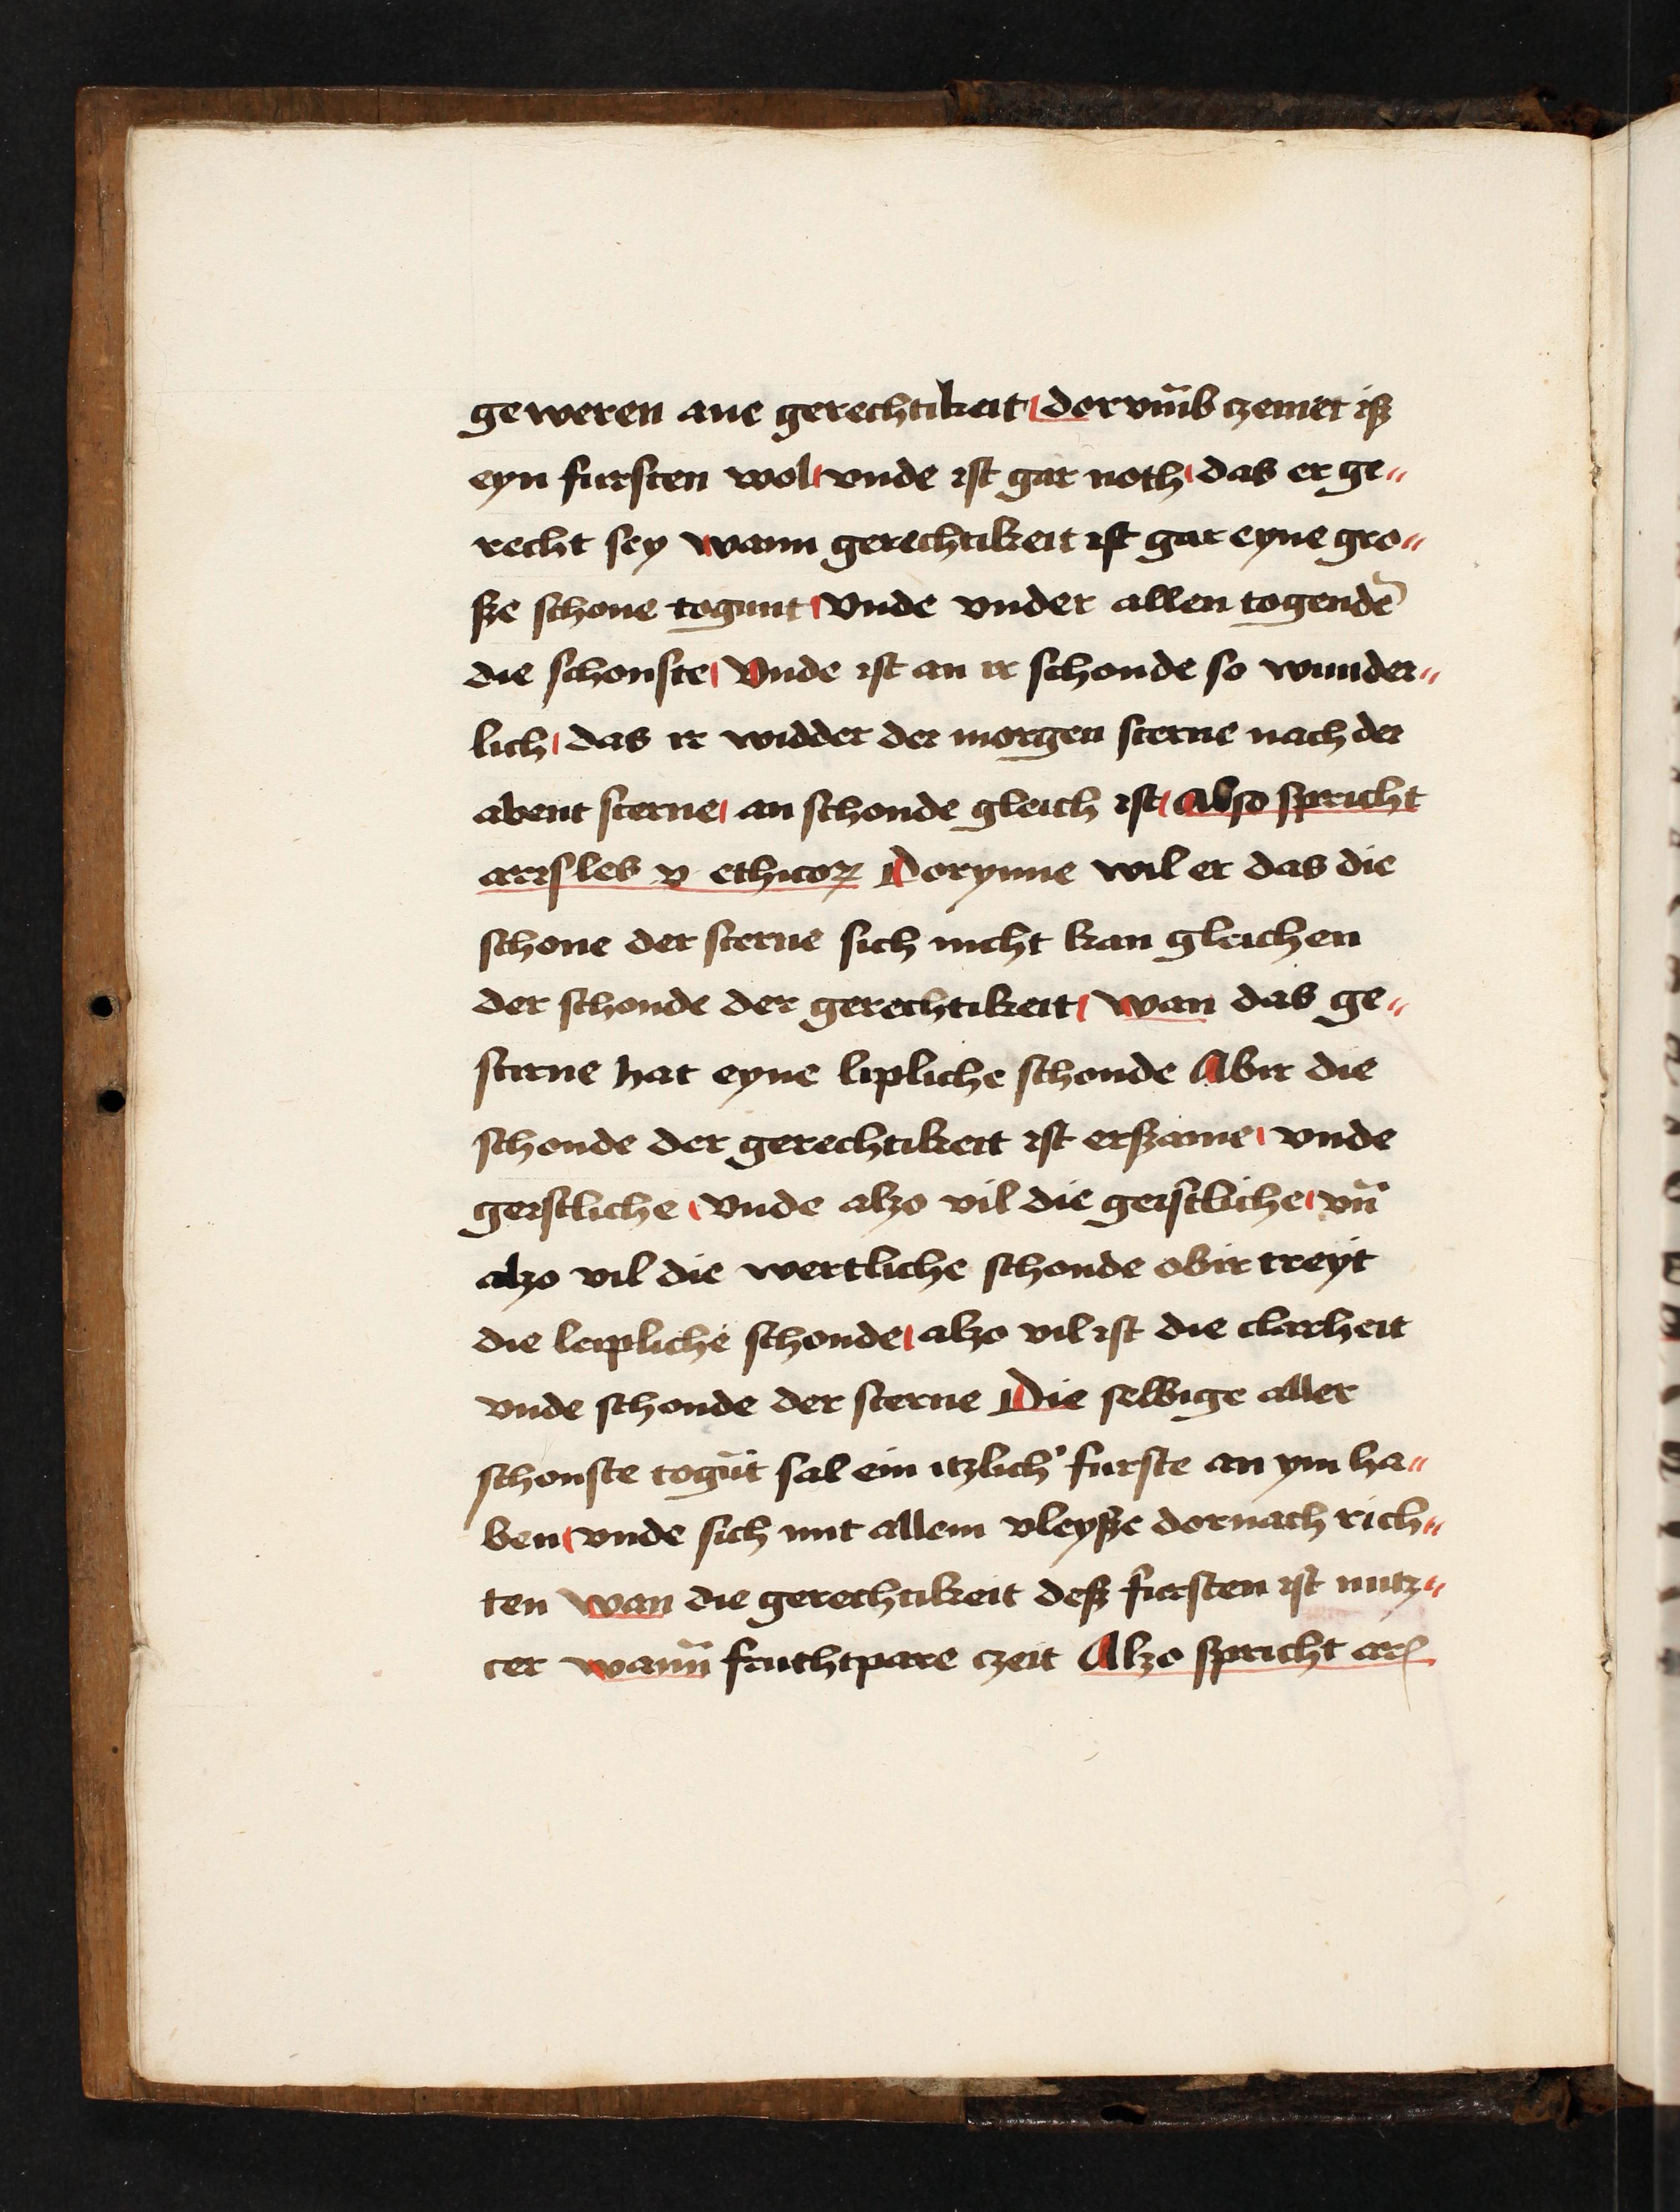 geweren ane gerechtikeit / dorvm̄b czemet iß
eyn fursten wol / vnde ist gar noth / das er ge„
recht sey wann gerechtikeit ist gar eyne gro„
ße schone togunt / Vnde vnder allen togendē
die schonste / Vnde ist an ir schonde so wunder„
lich / das ir widder der morgen sterne nach der
abent sterne / an schonde gleich ist / Also spricht
arestles v ethicoꝝ Dorynne wil er das die
schone der sterne sich nicht kan gleichen
der schonde der gerechtikeit / wan das ge„
stirne hat eyne lipliche schonde Abir die
schonde der gerechtikeit ist erßame / vnde
geistliche / Vnde alzo vil die geistliche / vn̄
alzo vil die wertliche schonde obir treyt
die leipliche schonde / alzo vil ist die clarheit
vnde schonde der sterne Die selbige aller
schonste togūt sal ein itzlich' furste an ym ha„
ben / vnde sich mit allem vleyße dornach rich„
ten wan die gerechtikeit deß fursten ist nutz„
cer wann̄ fruchtpare czeit Alzo spricht ar̃